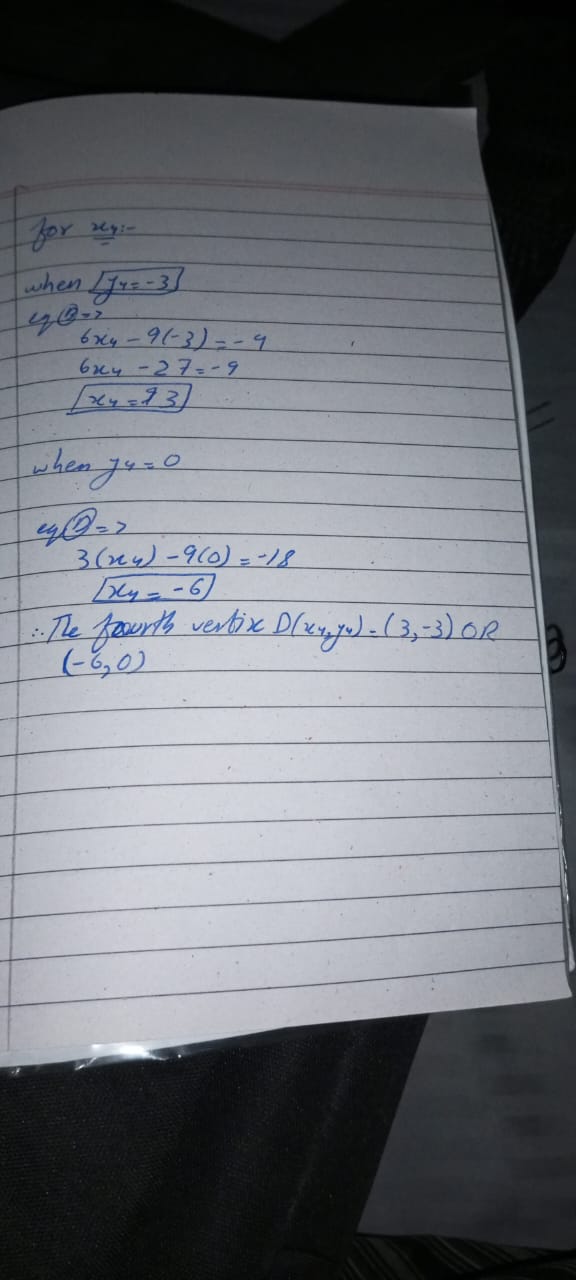 for x₄:-
when y₄ = -3
eq ② =>
6x₄ - 9(-3) = -9
6x₄ - 27 = -9
x₄ = 3
when y₄ = 0
eq ① =>
3(x₄) - 9(0) = -18
x₄ = -6
∴ The fourth vertix D(x₄,y₄) = (3,-3) OR
(-6,0)